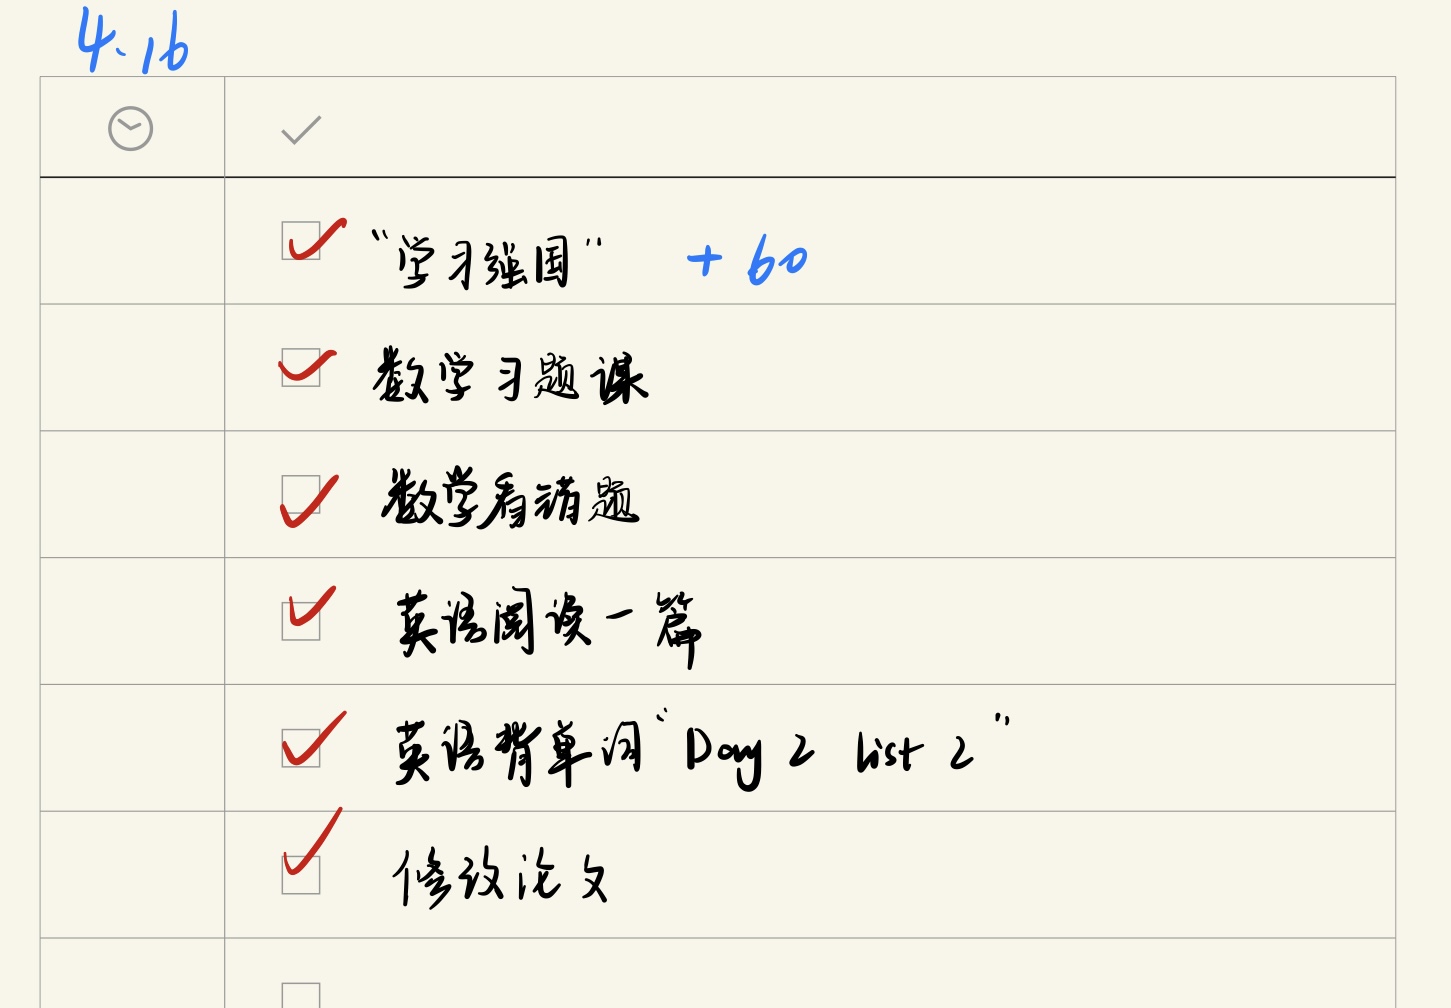 4.16
“学习强国” + 60
数学习题课
数学看错题
英语阅读一篇
英语背单词“Day 2 list 2”
修改论文